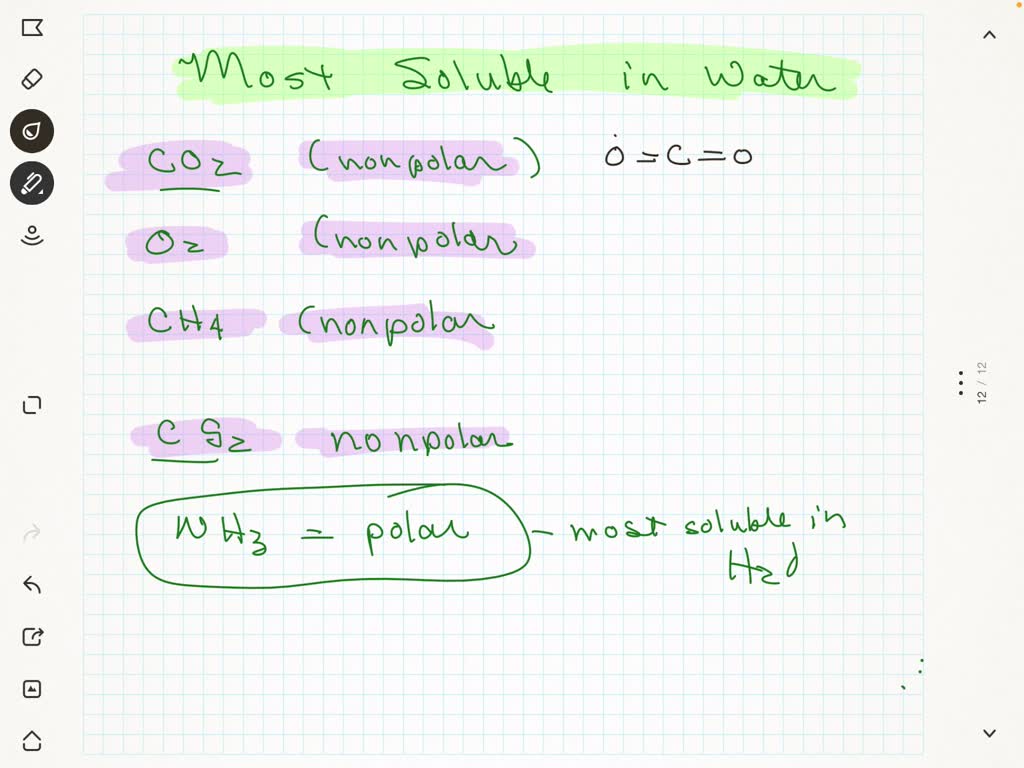 Most Soluble in Water
CO2 (nonpolar) O=C=O
O2 (nonpolar
CH4 (nonpolar
CS2 nonpolar
NH3 = polar - most soluble in
H2O
12 / 12